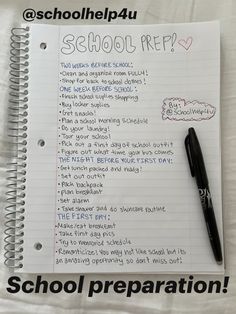 @schoolhelp4u
SCHOOL PREP!
TWO WEEKS BEFORE SCHOOL:
• Clean and organize room FULLY!
• Shop for back to school clothes!
ONE WEEK BEFORE SCHOOL:
• Finish school supplies shopping
• Buy locker supplies
• Get snacks!
• Plan a school morning schedule
• Do your laundry!
• Tour your school!
• Pick out a first day of school outfit
• Figure out what time your bus comes
THE NIGHT BEFORE YOUR FIRST DAY:
• Get lunch packed and ready!
• Set out outfit
• Pack backpack
• Plan breakfast
• Set alarm
• Take shower and do skincare routine
THE FIRST DAY:
• Make/eat breakfast
• Take first day pics
• Try to memorize schedule
• Romanticize! You may not like school but its
an amazing opportunity so don't miss out!
By:
@Schoolhelp4u
School preparation!